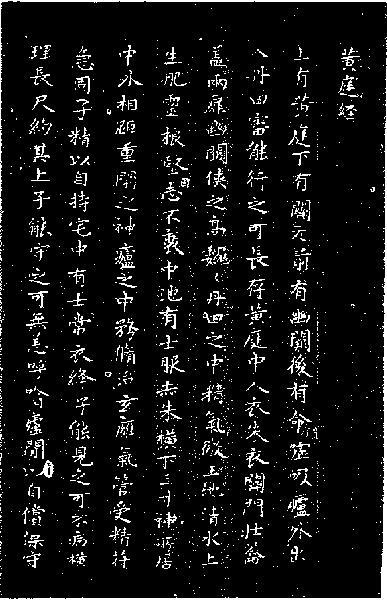 黃庭經
上有黃庭下有關元前有幽闕後有命噓吸廬外出
入丹田審能行之可長存黃庭中人衣朱衣關門壯籥
蓋兩扉幽闕俠之高巍〻丹田之中精氣微玉池清水上
生肥靈根堅志不衰中池有士服赤朱橫下三寸神所居
中外相距重閉之神廬之中務脩治玄廱氣管受精符
急固子精以自持宅中有士常衣絳子能見之可不病橫
理長尺約其上子能守之可無恙呼噏廬間以自償保守